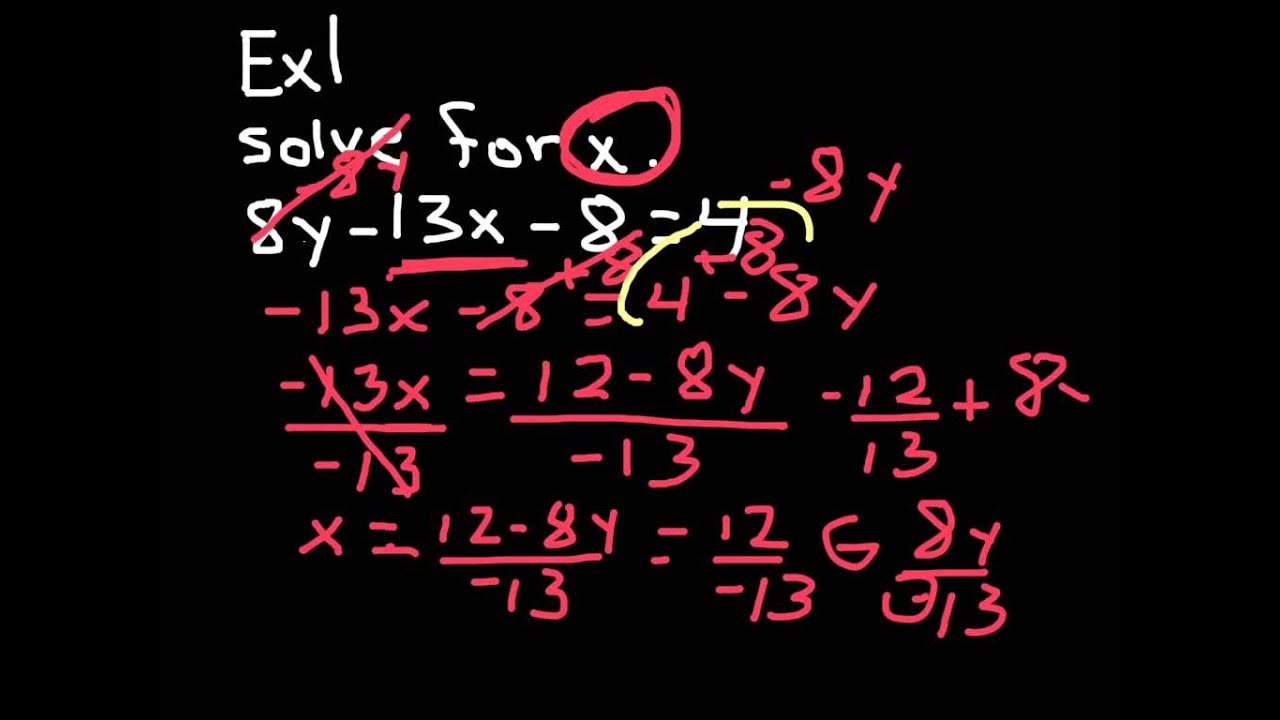 Ex1
solve for x.
-8y -8y
8y-13x-8=4
+8 +8
-13x-8=4-8y
-13x/-13 = 12-8y/-13 -12/13 + 8
x = 12-8y/-13 = 12/-13 - 8y/-13